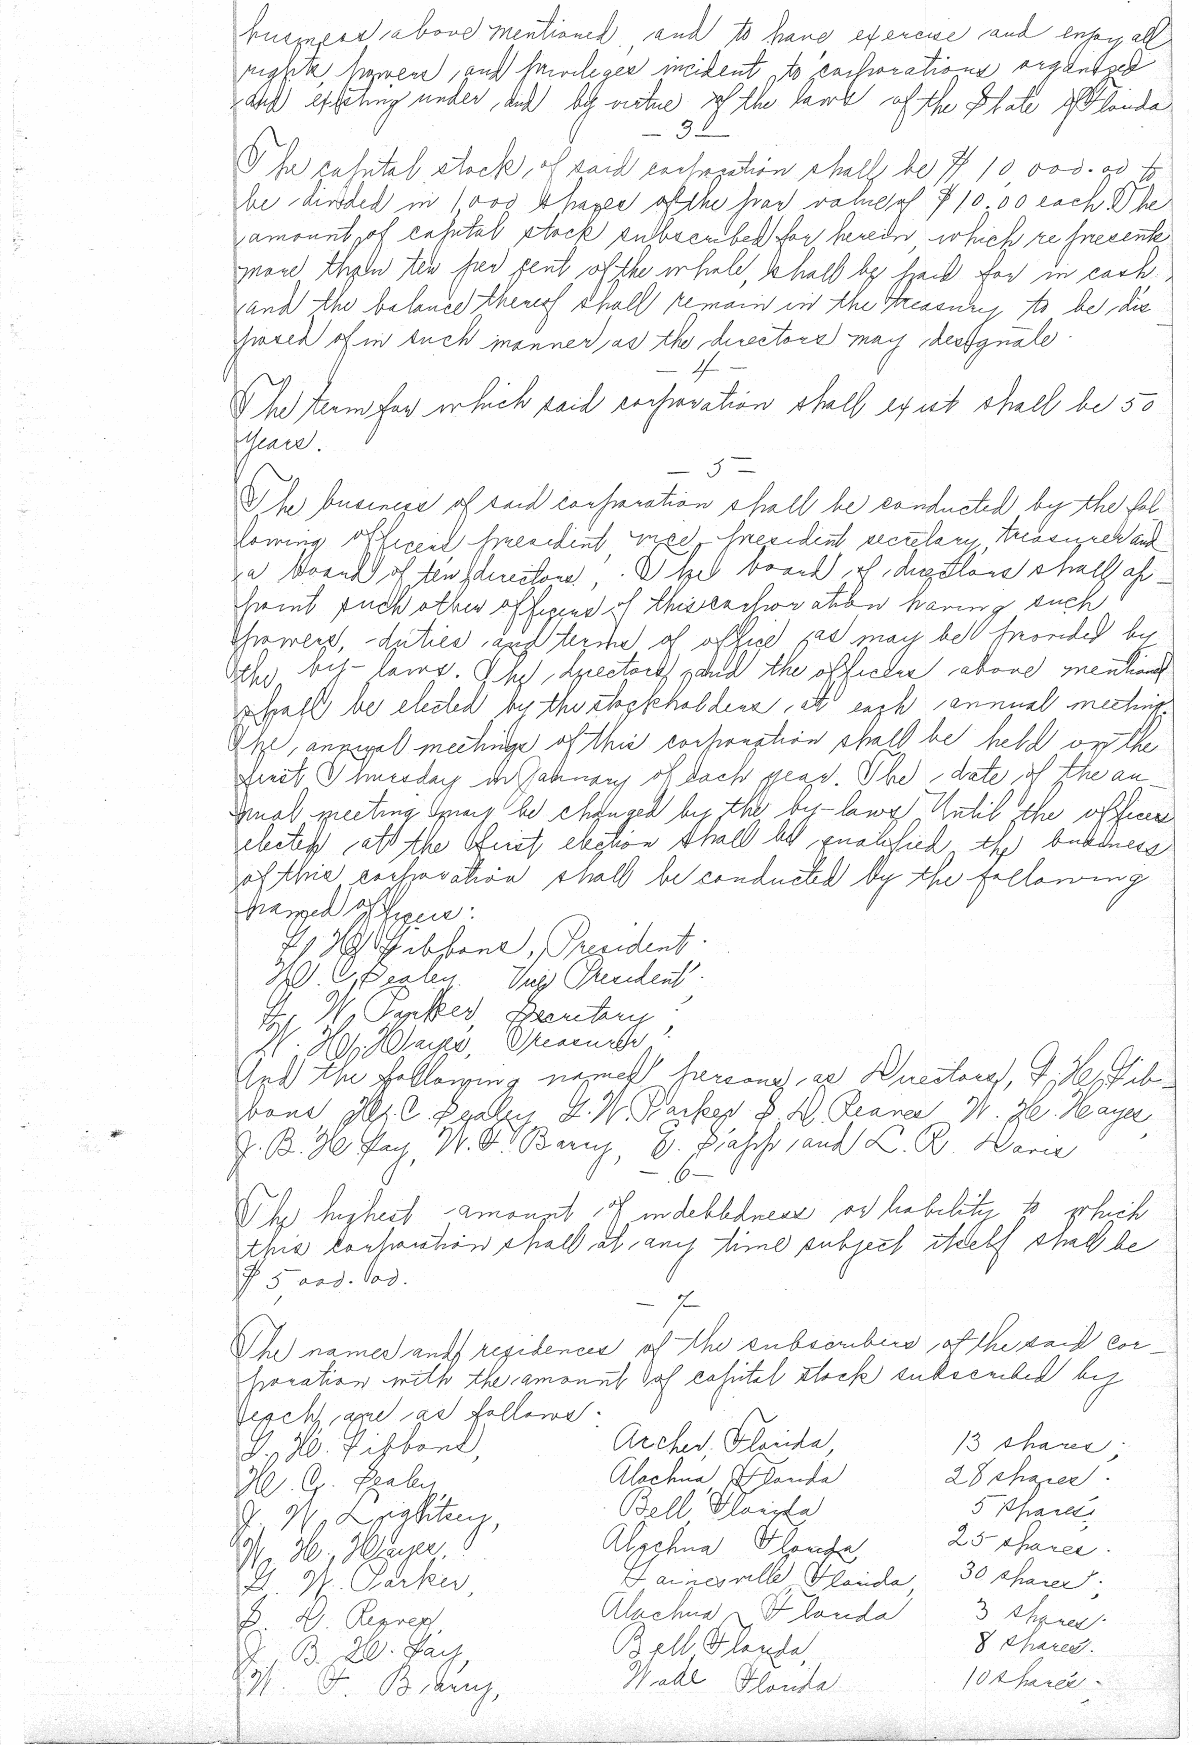 business above mentioned, and to have exercise and enjoy all
rights, powers and privileges incident to corporations organized
and existing under and by virtue of the laws of the State of Florida
— 3 —
The capital stock of said corporation shall be $10,000.00 to
be divided in 1,000 shares of the par value of $10.00 each. The
amount of capital stock subscribed for herein, which represents
more than ten per cent of the whole, shall be paid for in cash,
and the balance thereof shall remain in the treasury to be dis
posed of in such manner as the directors may designate.
— 4 —
The term for which said corporation shall exist shall be 50
years.
— 5 —
The business of said corporation shall be conducted by the fol
lowing officers president, vice president, secretary, treasurer and
a board of ten directors. The board of directors shall ap-
point such other officers of this corporation having such
powers, duties and terms of office as may be provided by
the by-laws. The directors and the officers above mentioned
shall be elected by the stockholders at each annual meeting.
The annual meetings of this corporation shall be held on the
first Thursday in January of each year. The date of the an-
nual meeting may be changed by the by-laws. Until the officers
elected at the first election shall be qualified the business
of this corporation shall be conducted by the following
named officers:
H. Gibbons, President.
H. C. Sealey Vice President.
W. Parker, Secretary;
W. H. Hayes, Treasurer.
And the following named persons as Directors, H. Gib-
bons H. C. Sealey W. Parker S. D. Reaves W. H. Hayes,
J. B. H. Jay, W. F. Barry, E. Sapp and L. R. Davis
— 6 —
The highest amount of indebtedness or liability to which
this corporation shall at any time subject itself shall be
$5,000.00.
— 7 —
The names and residences of the subscribers of the said cor-
poration with the amount of capital stock subscribed by
each are as follows:
H. Gibbons, Archer, Florida, 13 shares;
H. C. Sealey, Alachua, Florida 28 shares.
J. W. Lightsey, Bell, Florida 5 shares;
W. H. Hayes, Alachua Florida, 25 shares.
W. Parker, Gainesville Florida, 30 shares;
S. D. Reaves, Alachua, Florida 3 shares.
J. B. H. Jay, Bell, Florida, 8 shares.
W. F. Barry, Wade Florida 10 shares.